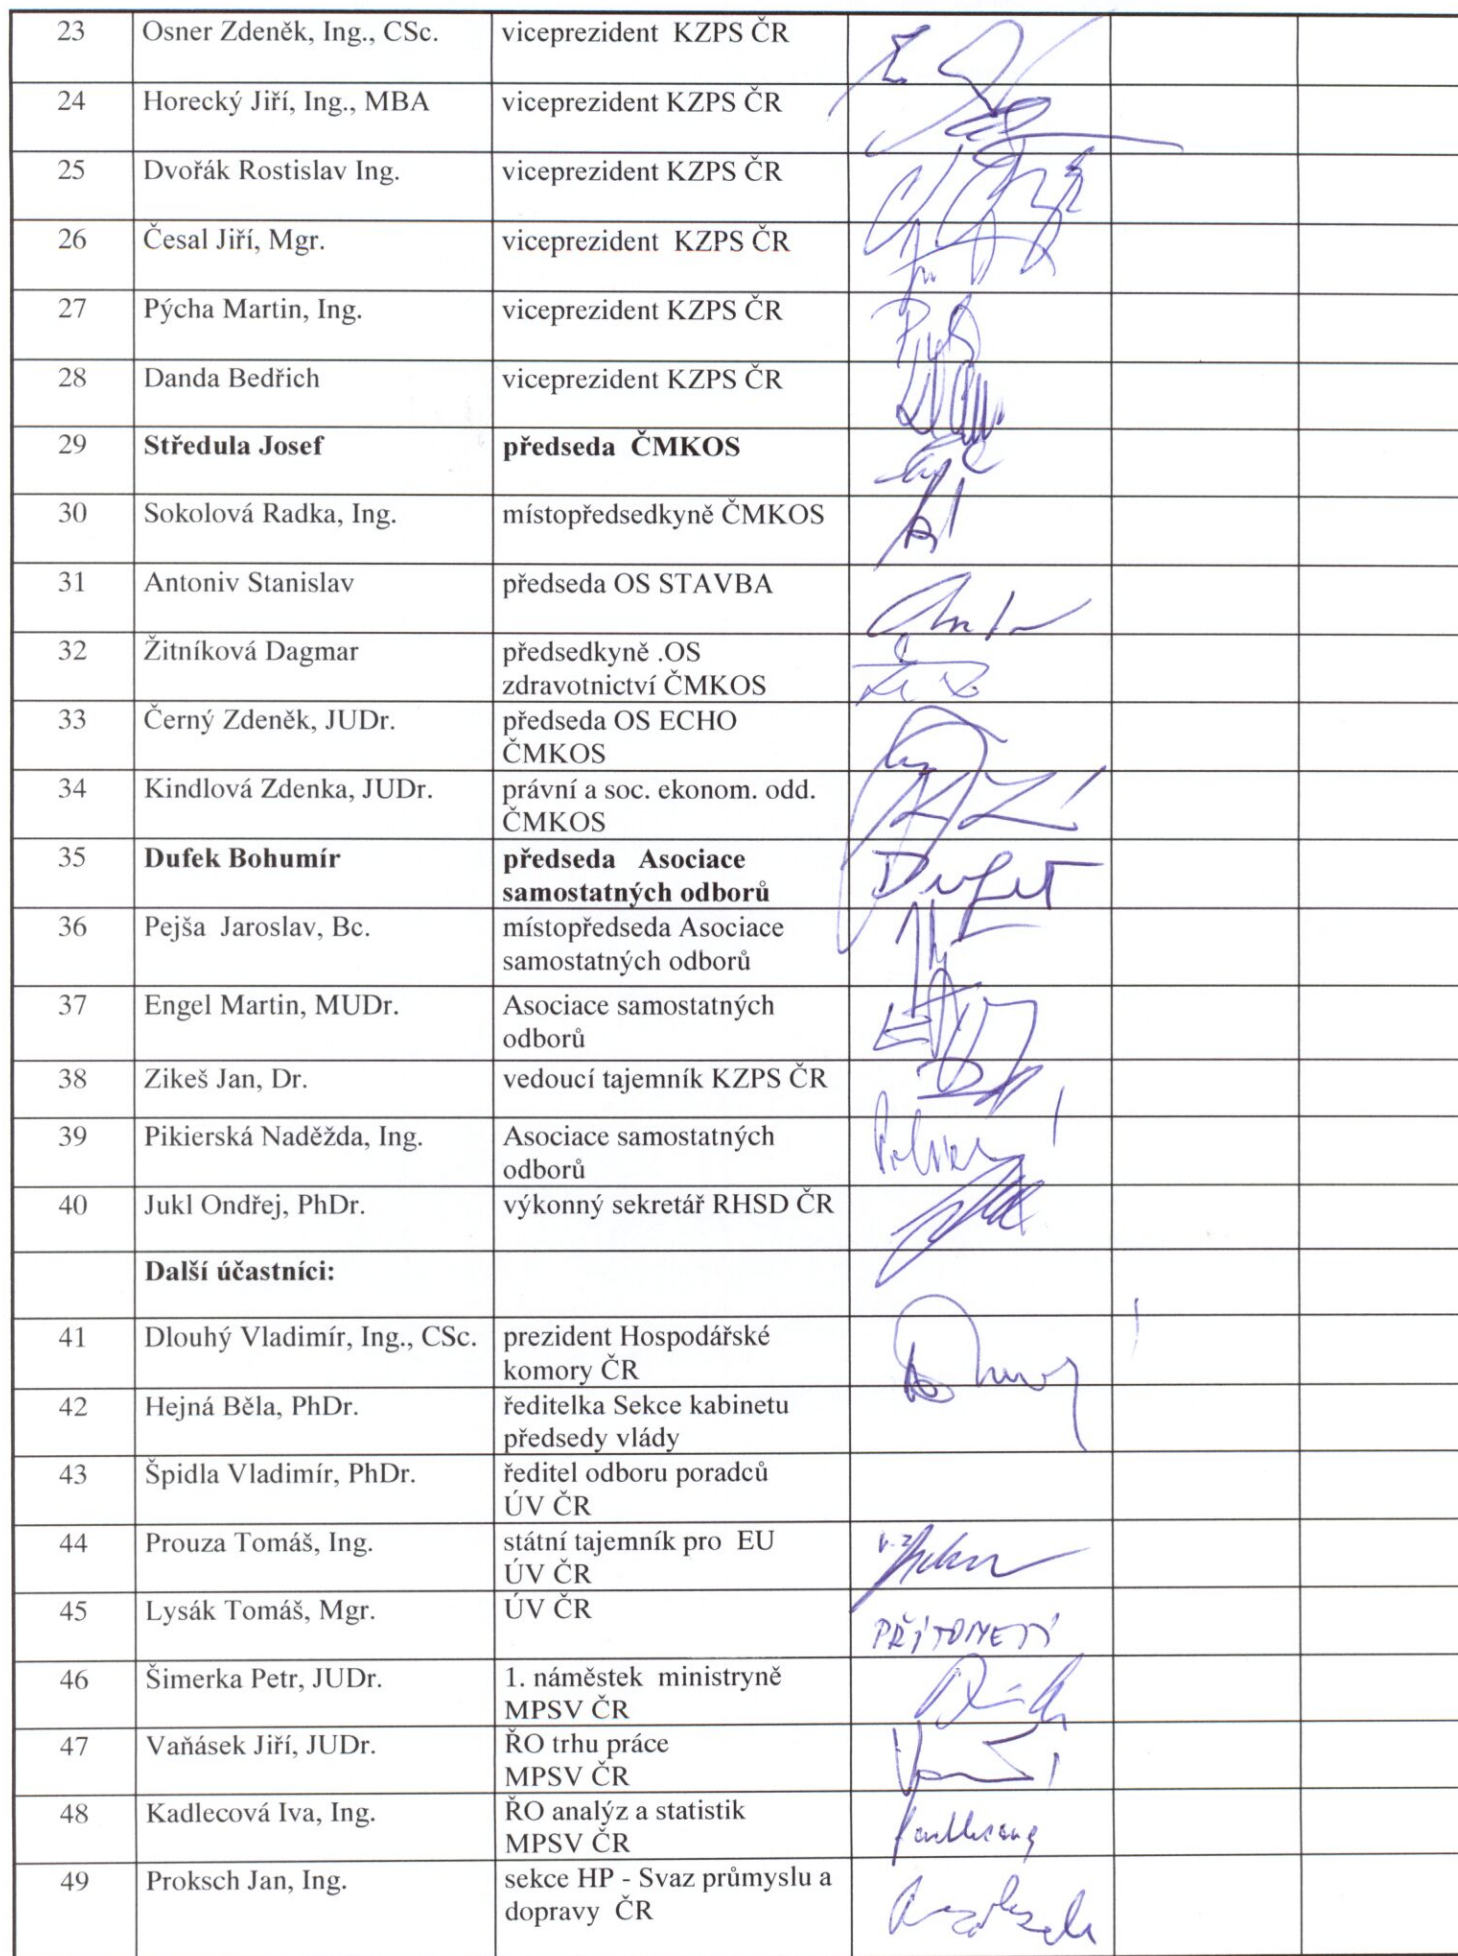 23 Osner Zdeněk, Ing., CSc. viceprezident KZPS ČR
24 Horecký Jiří, Ing., MBA viceprezident KZPS ČR
25 Dvořák Rostislav Ing. viceprezident KZPS ČR
26 Česal Jiří, Mgr. viceprezident KZPS ČR
27 Pýcha Martin, Ing. viceprezident KZPS ČR
28 Danda Bedřich viceprezident KZPS ČR
29 Středula Josef předseda ČMKOS
30 Sokolová Radka, Ing. místopředsedkyně ČMKOS
31 Antoniv Stanislav předseda OS STAVBA
32 Žitníková Dagmar předsedkyně .OS
zdravotnictví ČMKOS
33 Černý Zdeněk, JUDr. předseda OS ECHO
ČMKOS
34 Kindlová Zdenka, JUDr. právní a soc. ekonom. odd.
ČMKOS
35 Dufek Bohumír předseda Asociace
samostatných odborů
36 Pejša Jaroslav, Bc. místopředseda Asociace
samostatných odborů
37 Engel Martin, MUDr. Asociace samostatných
odborů
38 Zikeš Jan, Dr. vedoucí tajemník KZPS ČR
39 Pikierská Naděžda, Ing. Asociace samostatných
odborů
40 Jukl Ondřej, PhDr. výkonný sekretář RHSD ČR
Další účastníci:
41 Dlouhý Vladimír, Ing., CSc. prezident Hospodářské
komory ČR
42 Hejná Běla, PhDr. ředitelka Sekce kabinetu
předsedy vlády
43 Špidla Vladimír, PhDr. ředitel odboru poradců
ÚV ČR
44 Prouza Tomáš, Ing. státní tajemník pro EU
ÚV ČR
45 Lysák Tomáš, Mgr. ÚV ČR
46 Šimerka Petr, JUDr. 1. náměstek ministryně
MPSV ČR
47 Vaňásek Jiří, JUDr. ŘO trhu práce
MPSV ČR
48 Kadlecová Iva, Ing. ŘO analýz a statistik
MPSV ČR
49 Proksch Jan, Ing. sekce HP - Svaz průmyslu a
dopravy ČR